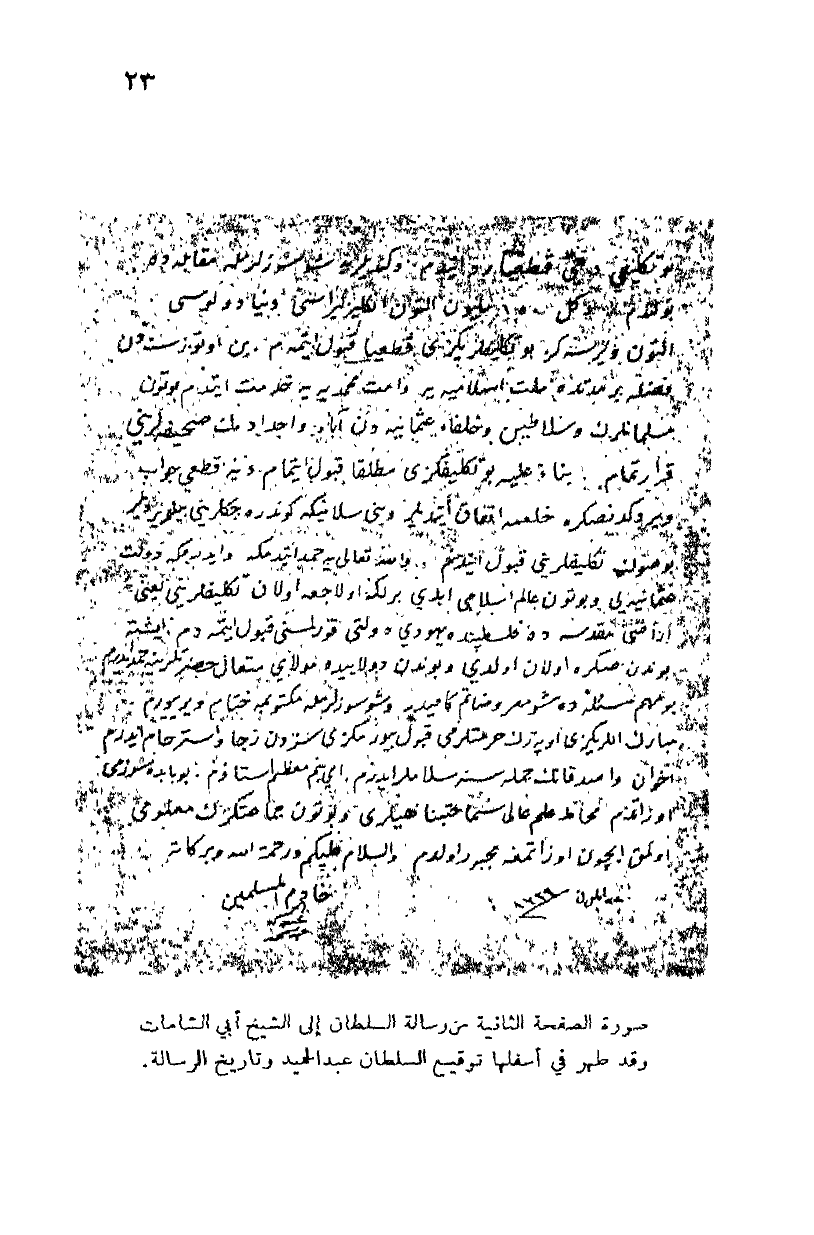 ٢٣
بو تكليفى دخى قطعيا رد ايتدم. وكنديلرينه شو سوزلرله مقابله ده
بولندم. دكل ١٥٠ مليون التون انكليز ليراسنى دنيا دولوسى
التون ويرسه كز بو تكليفلريكزى قطعيا قبول ايتمم. بن اوتوز سنه دن
فضله بر مدتده ملت اسلاميه يه وامت محمديه يه خدمت ايتدم بوتون
مسلمانلرك وسلاطين وخلفاء عثمانيه دن آباء واجدادمك صحيفه لرينى
قرارتمام. بناء عليه بو تكليفكزى مطلقا قبول ايتمام دينه قطعى جواب
ويردكدنصكره خلعمده اتفاق ايتديلر وبنى سلانيكه كوندره جكلرينى بيلديرديلر
بوصوك تكليفلرينى قبول ايتدم. والله تعالى يه حمد ايتدمكه وايدرمكه دولت
عثمانيه يى وبوتون عالم اسلامى ابدى بر لكه اولاجق اولان تكليفلرينى يعنى
أراضئ مقدسه ده فلسطينده يهودى دولتى قورلمسنى قبول ايتمه دم. ايشته
بوندن صكره اولان اولدى وبوندن دولاييده مولاى متعال حضرتلرينه حمد ايدرم
بو مهم مسئله ده شو معروضاتم كافيدر. وشو سوزلرمله مكتوبمه ختام ويرييورم.
مبارك اللريكزى اوپرك حرمتلرمى قبول بيورمكزى سزدن رجا واسترحام ايدرم
اخوان واصدقانك جمله سنه سلاملر ايدرم. اى بنم معظم استاذم. بو بابده سوزمى
اوزاتدم. محاط علم عالى سماحتپناهيلرى وبوتون جماعتكزك معلومى
اولمق ايچون اوزاتمغه مجبور اولدم. والسلام عليكم ورحمة الله وبركاته
فى ٢٢ ايلول ١٣٢٩
خادم المسلمين
صورة الصفحة الثانية من رسالة السلطان إلى الشيخ أبي الشامات
وقد ظهر في أسفلها توقيع السلطان عبدالحميد وتاريخ الرسالة.